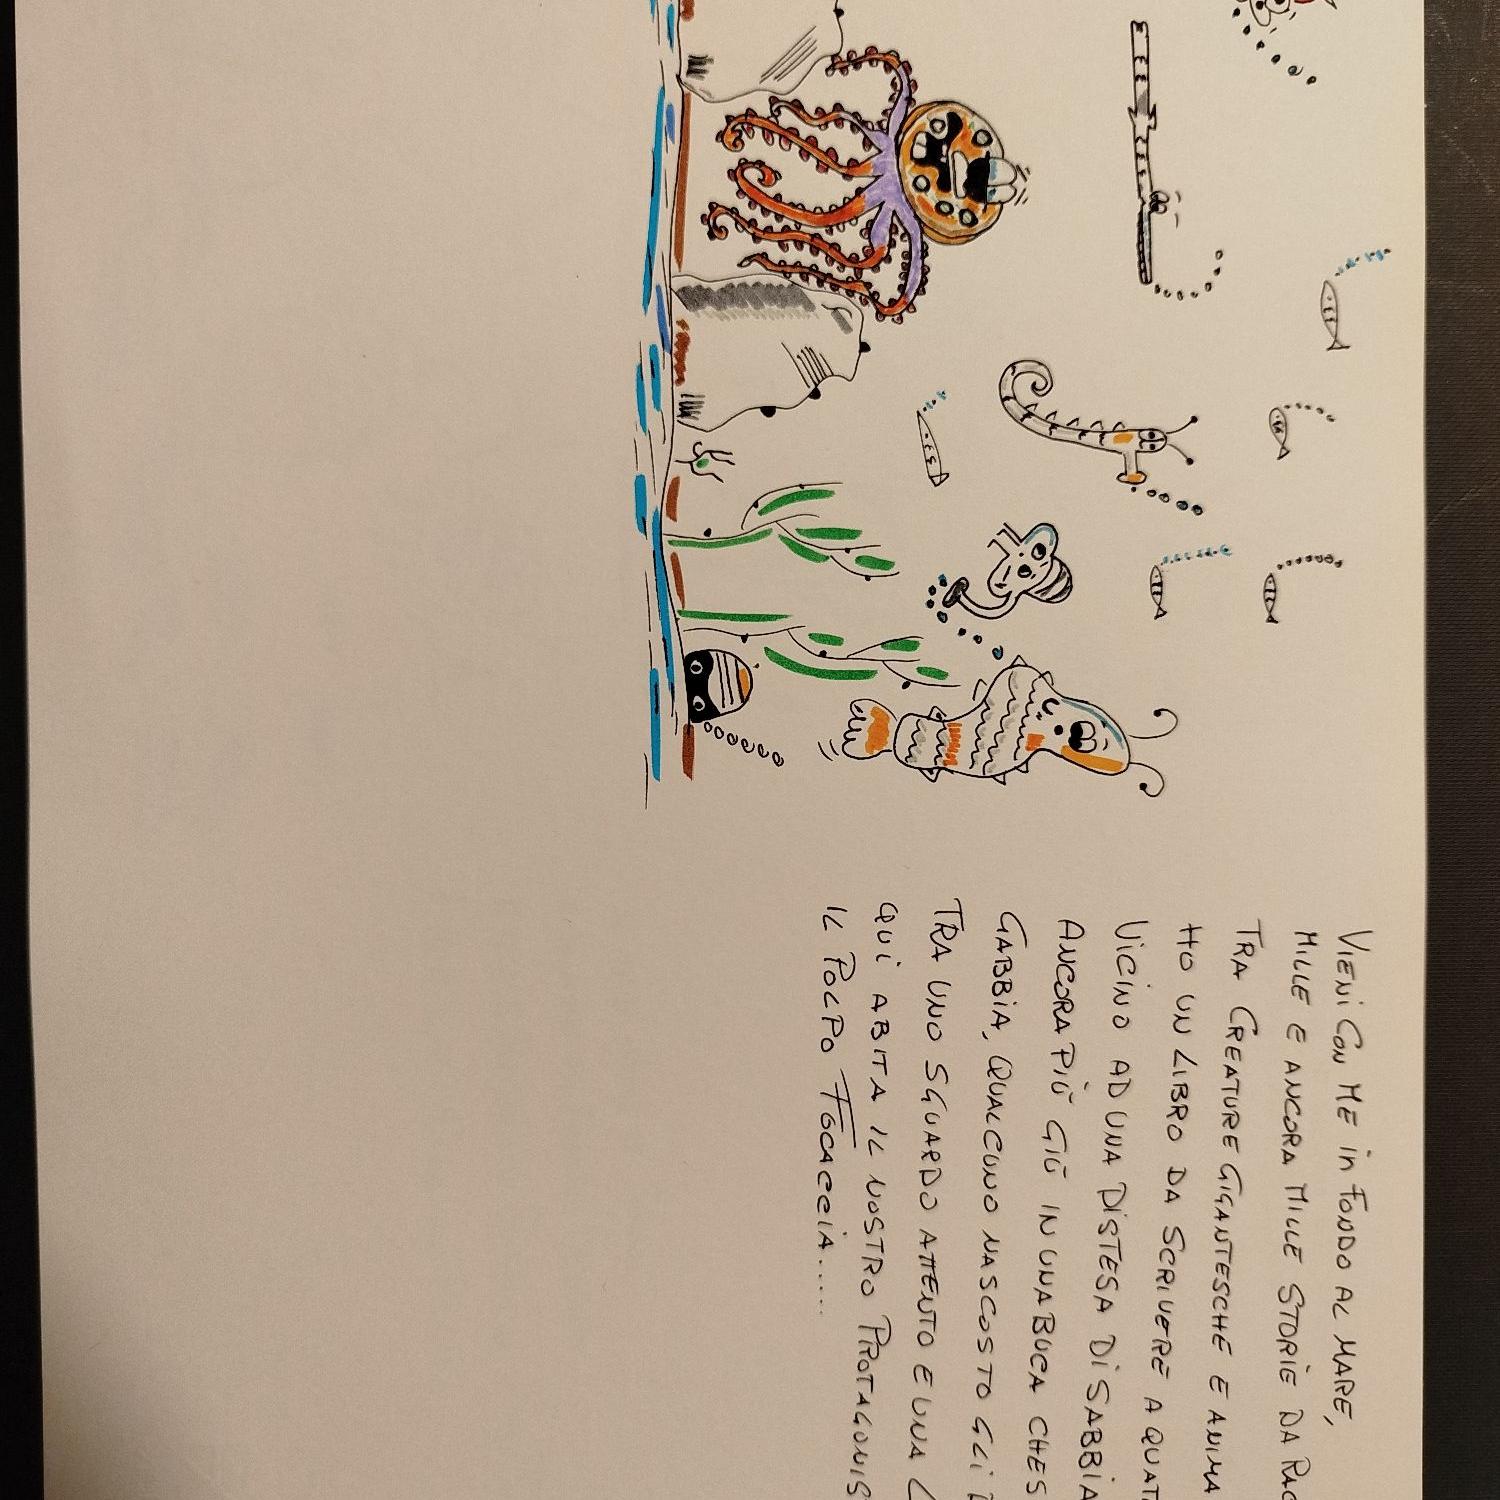 VIENI CON ME IN FONDO AL MARE,
MILLE E ANCORA MILLE STORIE DA RAC
TRA CREATURE GIGANTESCHE E ANIMA
HO UN LIBRO DA SCRIVERE A QUAT
VICINO AD UNA DISTESA DI SABBIA
ANCORA PIÙ GIÙ IN UNA BUCA CHE S
GABBIA, QUALCUNO NASCOSTO GLI
TRA UNO SGUARDO ATTENTO E UNA
QUI ABITA IL NOSTRO PROTAGONIS
IL POLPO FOCACCIA.....